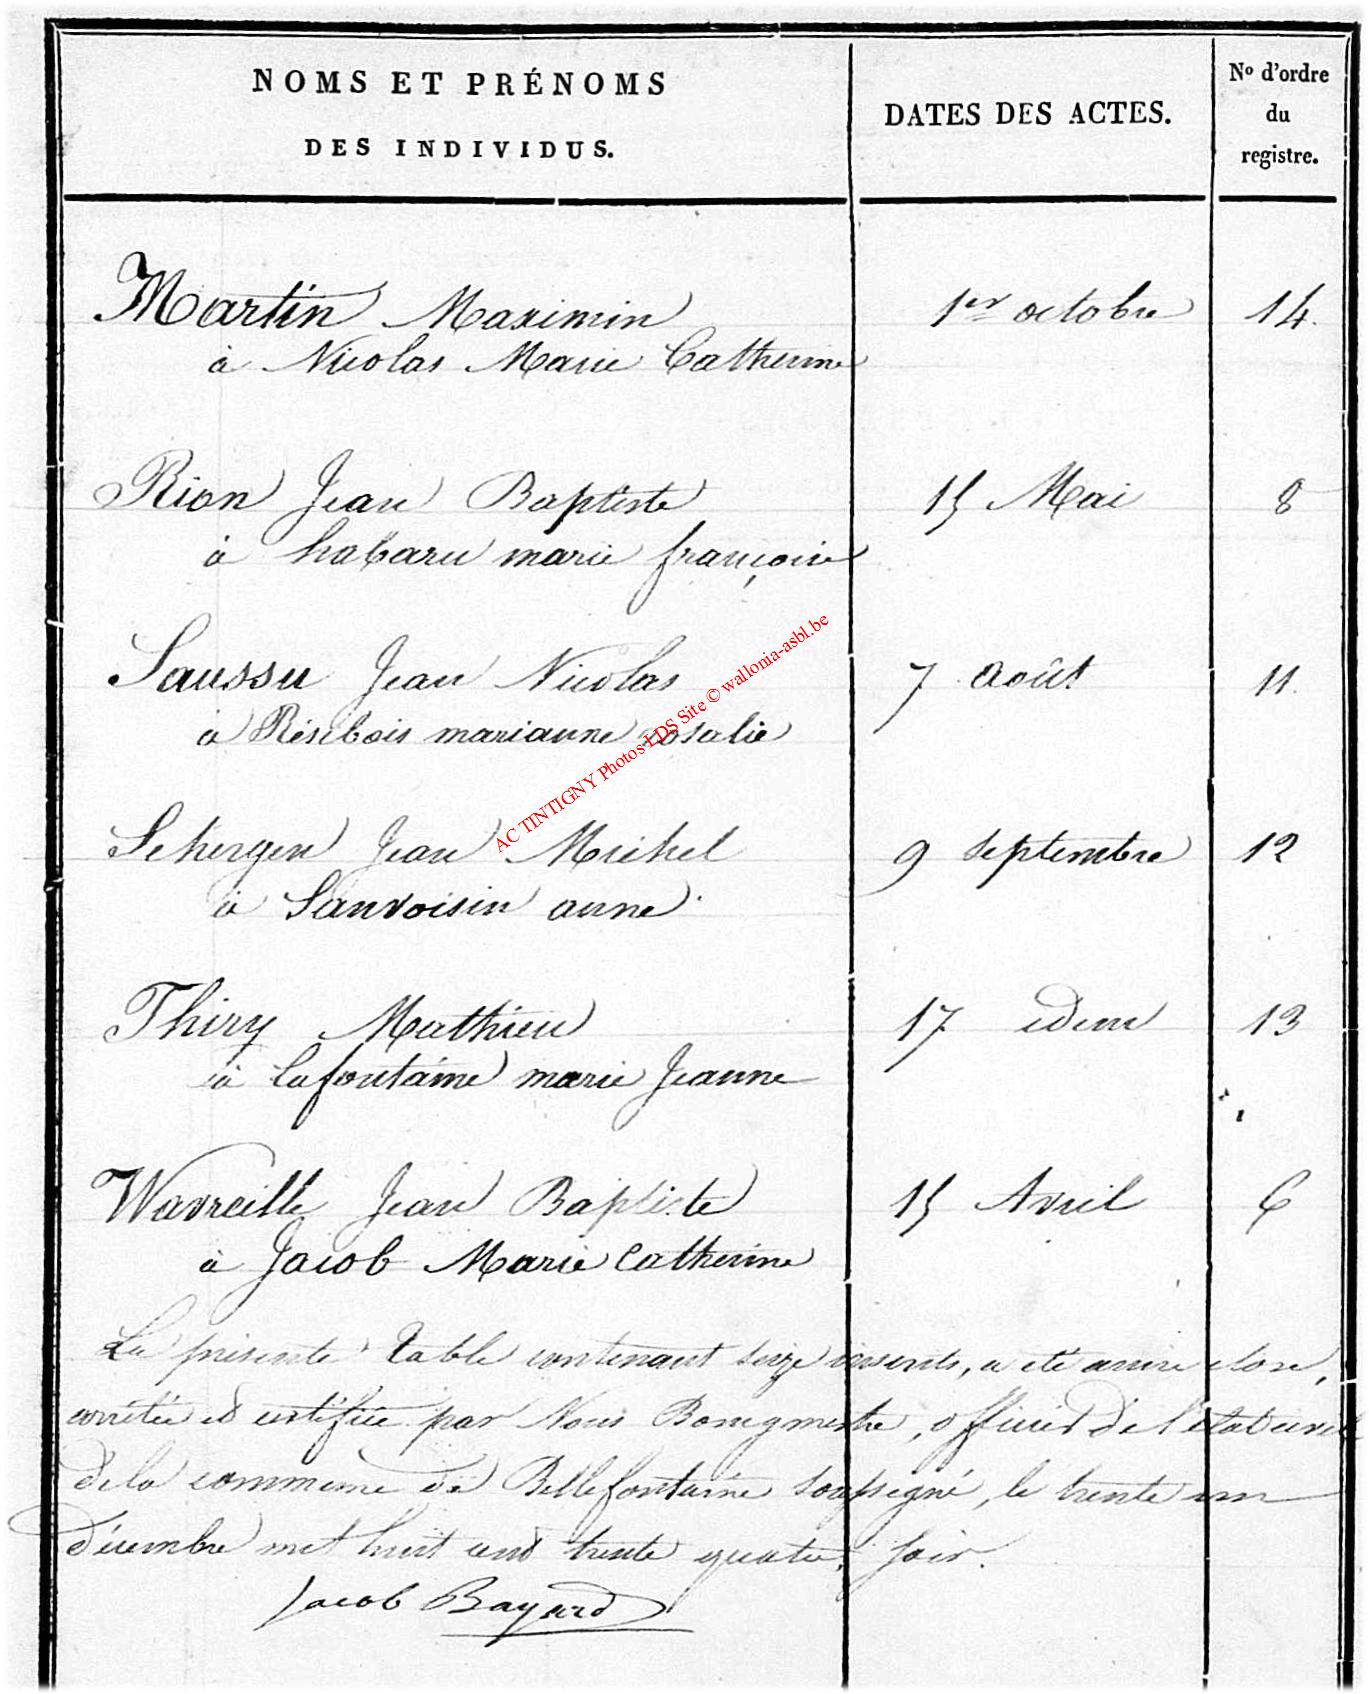 NOMS ET PRÉNOMS
DES INDIVIDUS.
DATES DES ACTES.
N° d'ordre
du
registre.
Martin Maximin 1er octobre 14.
à Nicolas Marie Catherine
Rion Jean Baptiste 15 Mai 8
à habaru marie françoise
Saussu Jean Nicolas 7 Août 11.
à Résibois marianne rosalie
AC TINTIGNY Photos LDS Site © wallonia-asbl.be
Schergen Jean Michel 9 Septembre 12
à Sauvoisin anne
Thiry Mathieu 17 idem 13
à lafontaine marie Jeanne
Wavreille Jean Baptiste 15 Avril 6
à Jacob Marie Catherine
La présente table contenant seize inserits, a été close,
arrêtée et certifiée par Nous Bourgmestre, officier de l'état civil
de la commune de Bellefontaine soussigné, le trente un
décembre mil huit cent trente quatre, soir.
Jacob Bayard